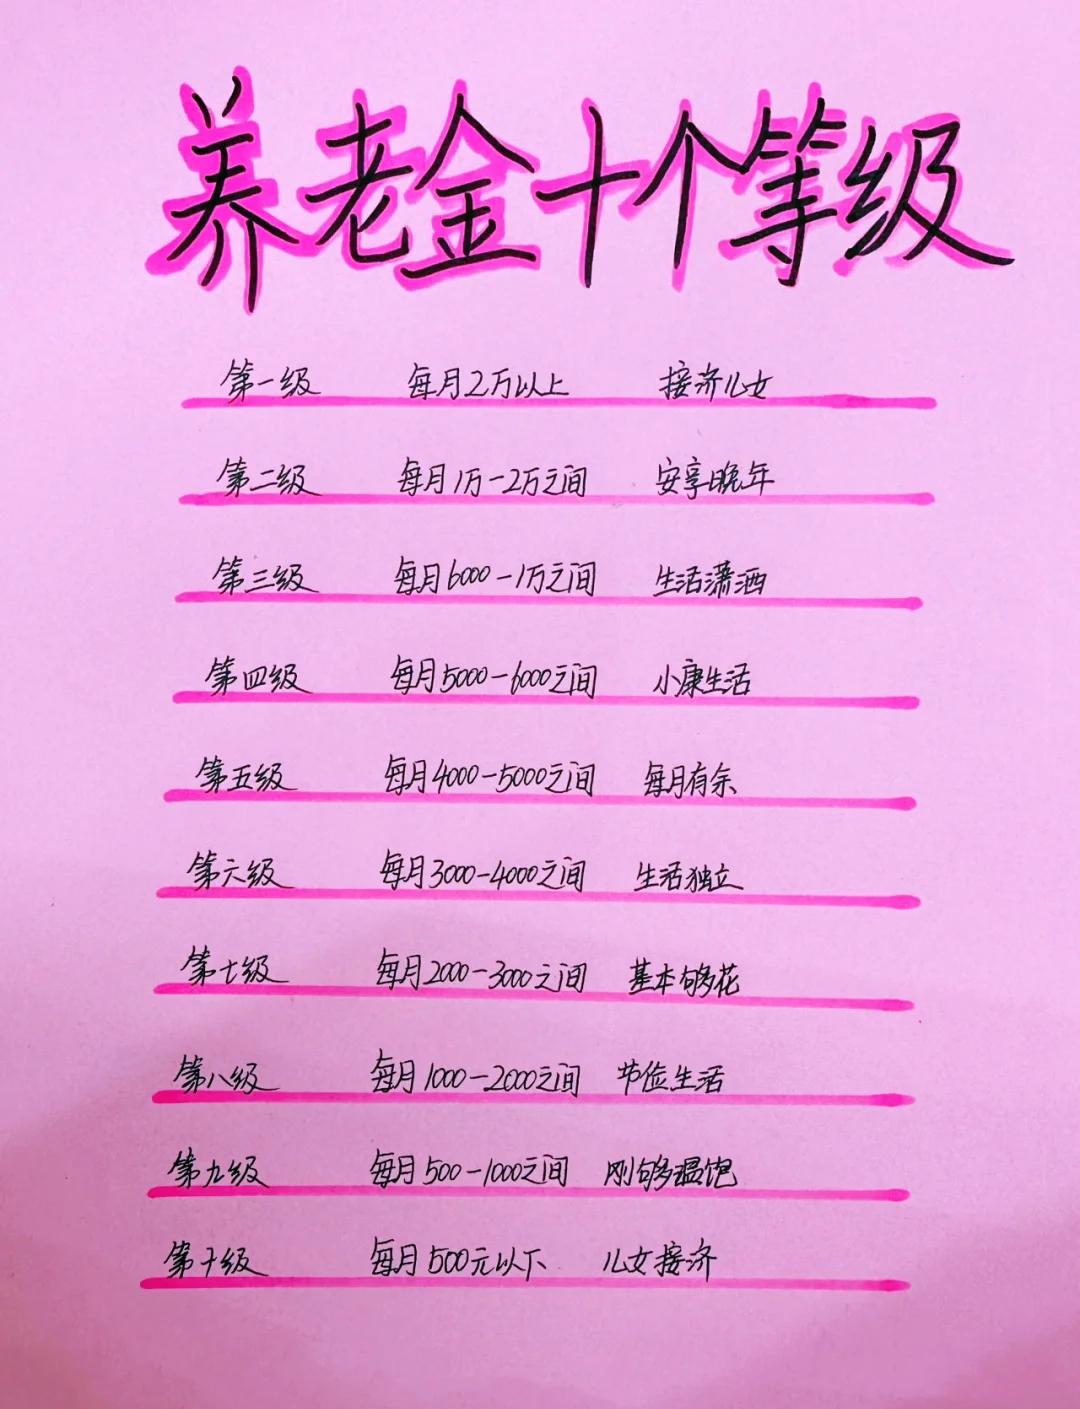 养老金十个等级
第一级 每月2万以上 接济儿女
第二级 每月1万-2万之间 安享晚年
第三级 每月6000-1万之间 生活潇洒
第四级 每月5000-6000之间 小康生活
第五级 每月4000-5000之间 每月有余
第六级 每月3000-4000之间 生活独立
第七级 每月2000-3000之间 基本够花
第八级 每月1000-2000之间 节俭生活
第九级 每月500-1000之间 刚够温饱
第十级 每月500元以下 儿女接济